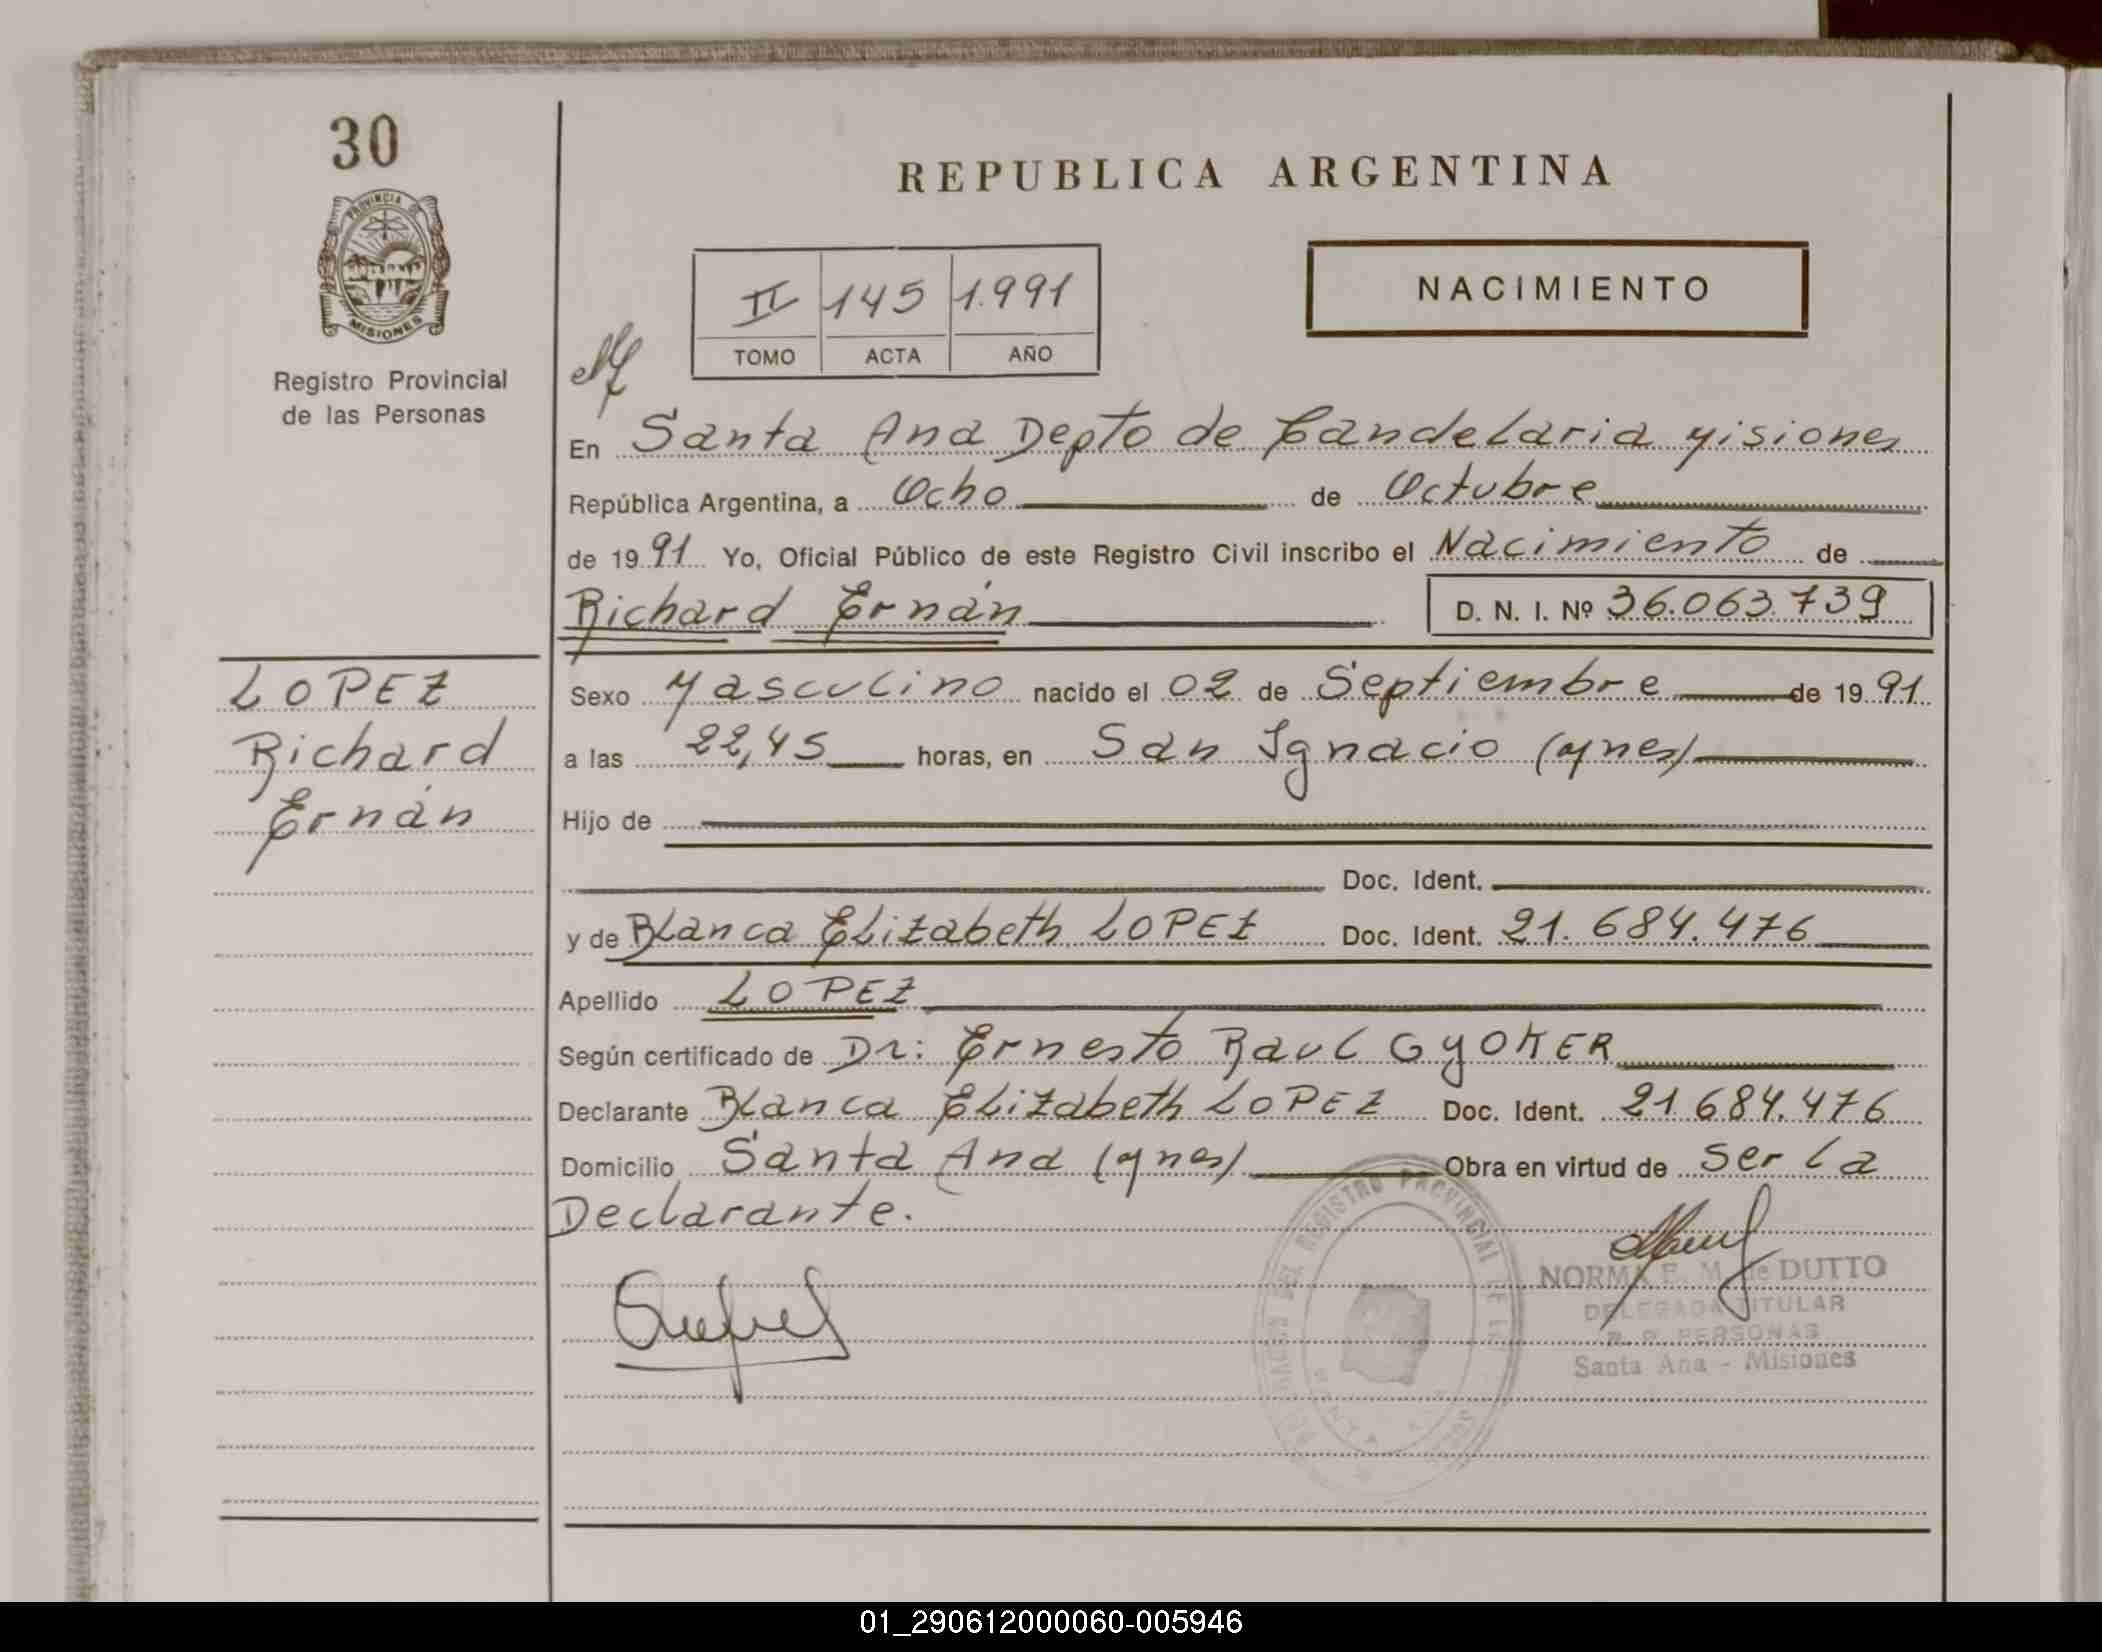 30
PROVINCIA DE
MISIONES
Registro Provincial
de las Personas
LOPEZ
Richard
Ernán
REPUBLICA ARGENTINA
II 145 1.991
TOMO ACTA AÑO
NACIMIENTO
En Santa Ana Depto de Candelaria Misiones
República Argentina, a Ocho de Octubre
de 1991 Yo, Oficial Público de este Registro Civil inscribo el Nacimiento de
Richard Ernán D. N. I. Nº 36.063.739
Sexo Masculino nacido el 02 de Septiembre de 1991
a las 22,45 horas, en San Ignacio (Mnes)
Hijo de
Doc. Ident.
y de Blanca Elizabeth LOPEZ Doc. Ident. 21.684.476
Apellido LOPEZ
Según certificado de Dr: Ernesto Raul GYOKER
Declarante Blanca Elizabeth LOPEZ Doc. Ident. 21.684.476
Domicilio Santa Ana (Mnes) Obra en virtud de ser la
Declarante.
REGISTRO PROVINCIAL DE LAS
NORMA E. M. de DUTTO
DELEGADA TITULAR
R. P. PERSONAS
Santa Ana - Misiones
01_290612000060-005946